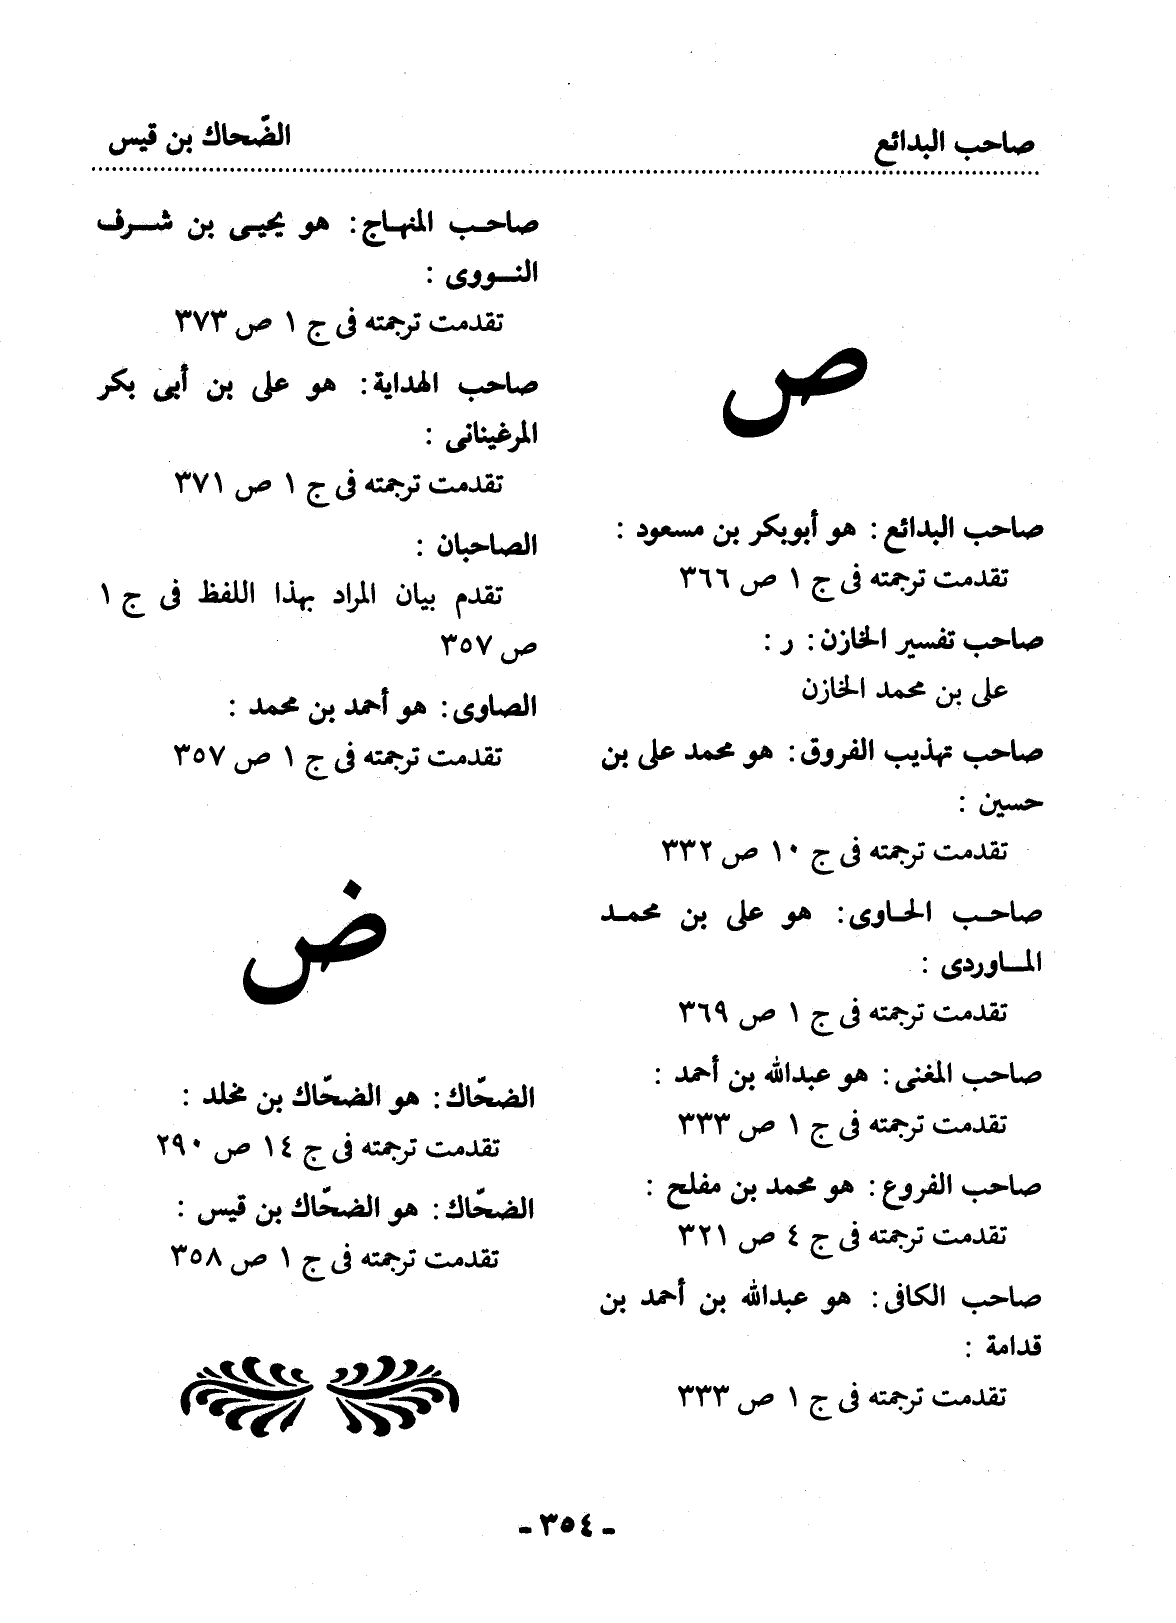 صاحب البدائع
الضّحاك بن قيس
ص
صاحب البدائع : هو أبوبكر بن مسعود :
تقدمت ترجمته فى ج ١ ص ٣٦٦
صاحب تفسير الخازن : ر :
على بن محمد الخازن
صاحب تهذيب الفروق : هو محمد على بن
حسين :
تقدمت ترجمته فى ج ١٠ ص ٣٣٢
صاحب الحاوى : هو على بن محمد
الماوردى :
تقدمت ترجمته فى ج ١ ص ٣٦٩
صاحب المغنى : هو عبدالله بن أحمد :
تقدمت ترجمته فى ج ١ ص ٣٣٣
صاحب الفروع : هو محمد بن مفلح :
تقدمت ترجمته فى ج ٤ ص ٣٢١
صاحب الكافى : هو عبدالله بن أحمد بن
قدامة :
تقدمت ترجمته فى ج ١ ص ٣٣٣
صاحب المنهاج : هو يحيى بن شرف
النووى :
تقدمت ترجمته فى ج ١ ص ٣٧٣
صاحب الهداية : هو على بن أبى بكر
المرغينانى :
تقدمت ترجمته فى ج ١ ص ٣٧١
الصاحبان :
تقدم بيان المراد بهذا اللفظ فى ج ١
ص ٣٥٧
الصاوى : هو أحمد بن محمد :
تقدمت ترجمته فى ج ١ ص ٣٥٧
ض
الضحّاك : هو الضحّاك بن مخلد :
تقدمت ترجمته فى ج ١٤ ص ٢٩٠
الضحّاك : هو الضحّاك بن قيس :
تقدمت ترجمته فى ج ١ ص ٣٥٨
- ٣٥٤ -